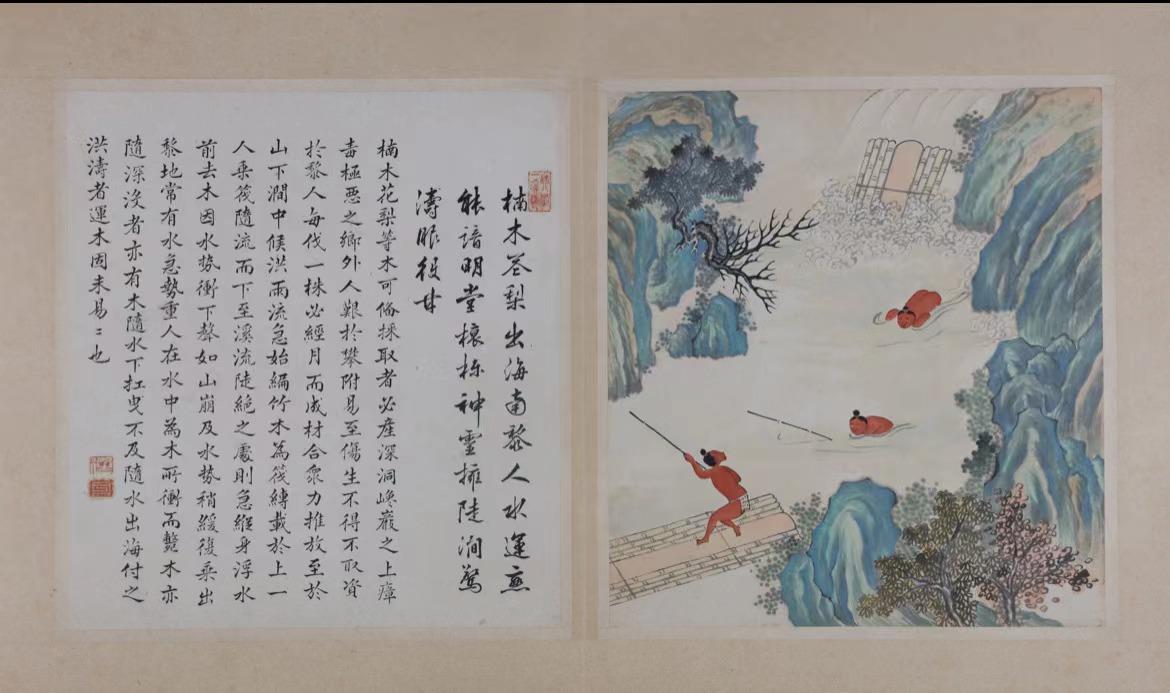 楠木花梨出海南黎人水運
能諳明堂榱棟神靈擁陡澗驚
濤服役甘
楠木花梨等木可俻採取者必產深洞峻巖之上瘴
毒極惡之鄉外人艱於攀附易至傷生不得不取資
於黎人每伐一株必經月而成材合衆力推放至於
山下澗中候洪雨流急始編竹木為筏縛載於上一
人乗筏隨流而下至溪流陡絶之處則急縱身浮水
前去木因水勢衝下聲如山崩及水勢稍緩復乗出
黎地常有水急勢重人在水中為木所衝而斃木亦
隨深沒者亦有木隨水下扛曵不及隨水出海付之
洪濤者運木固未易〻也